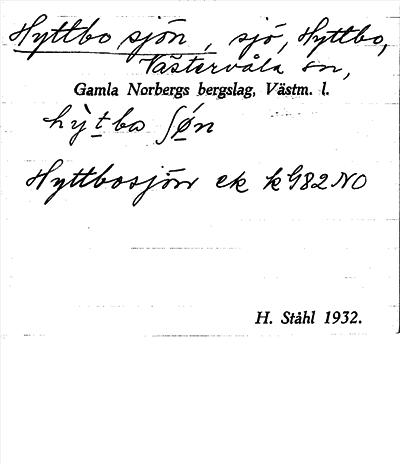 Hyttbo sjön, sjö, Hyttbo,
Västervåla sn,
Gamla Norbergs bergslag, Västm. l.
hỳtbo ʃǿn
Hyttbosjön ek k982NO
H. Ståhl 1932.